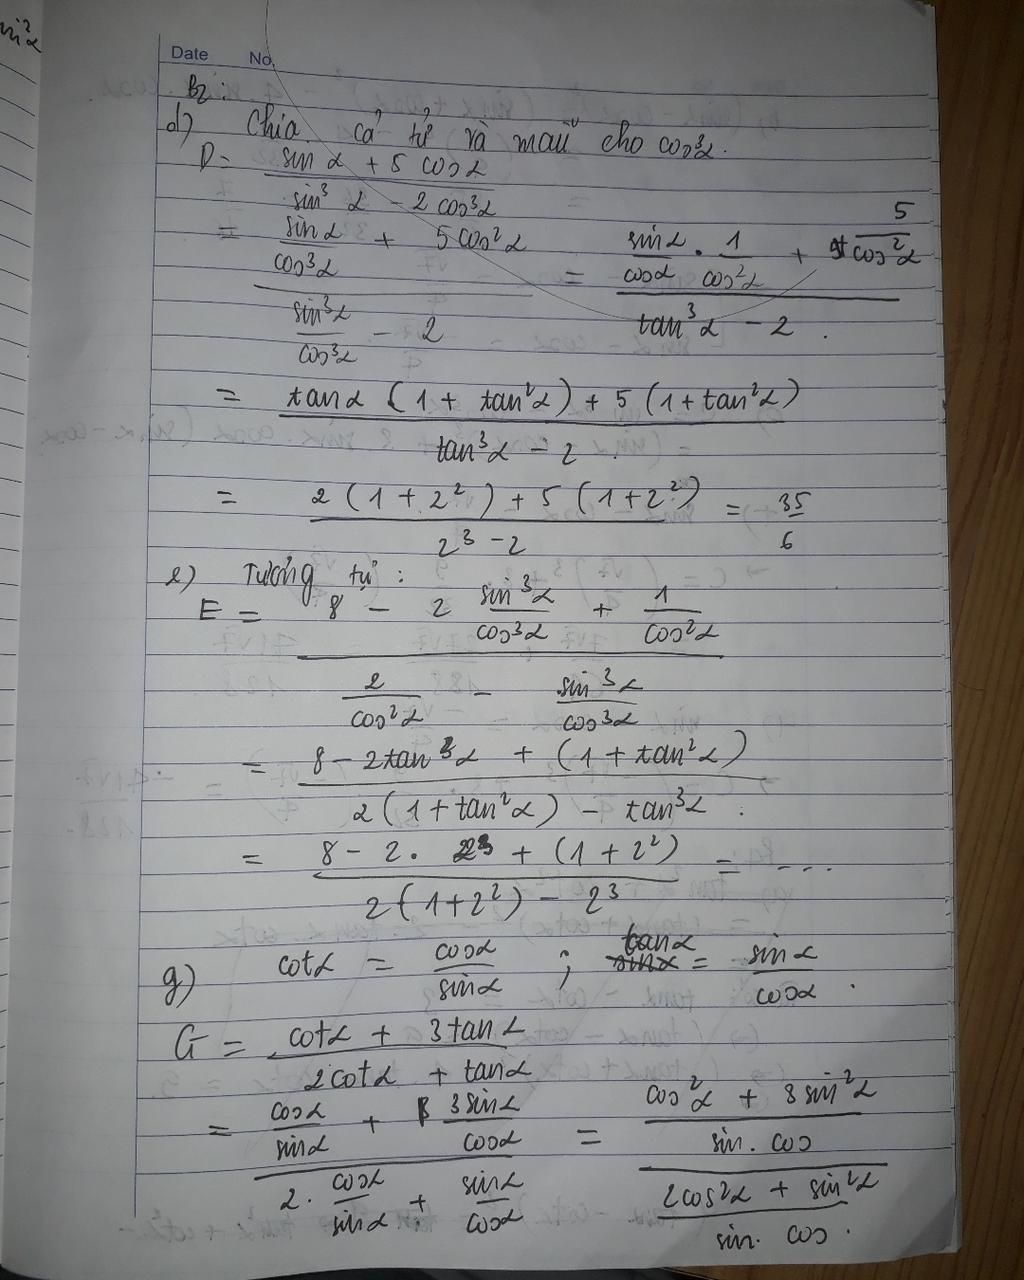 Date No.
B2:
d) Chia cả tử và mẫu cho cos³α.
D = (sin α + 5 cos α) / (sin³ α - 2 cos³α)
= (sin α / cos³α + 5 cos²α) / (sin³α / cos³α - 2) = (sin α / cos α . 1 / cos²α + 5 / cos²α) / (tan³α - 2) .
= (tan α (1 + tan²α) + 5 (1 + tan²α)) / (tan³α - 2) .
= (2 (1 + 2²) + 5 (1 + 2²)) / (2³ - 2) = 35 / 6
e) Tương tự :
E = (8 - 2 sin³α / cos³α + 1 / cos²α) / (2 / cos²α - sin³α / cos³α)
= (8 - 2tan³α + (1 + tan²α)) / (2(1 + tan²α) - tan³α) .
= (8 - 2. 2³ + (1 + 2²)) / (2(1+2²) - 2³) = ...
g) cot α = cos α / sin α ; tan α = sin α / cos α .
G = (cot α + 3 tan α) / (2 cot α + tan α)
= (cos α / sin α + 3 sin α / cos α) / (2. cos α / sin α + sin α / cos α) = ((cos²α + 3 sin²α) / (sin. cos)) / ((2cos²α + sin²α) / (sin. cos)) .